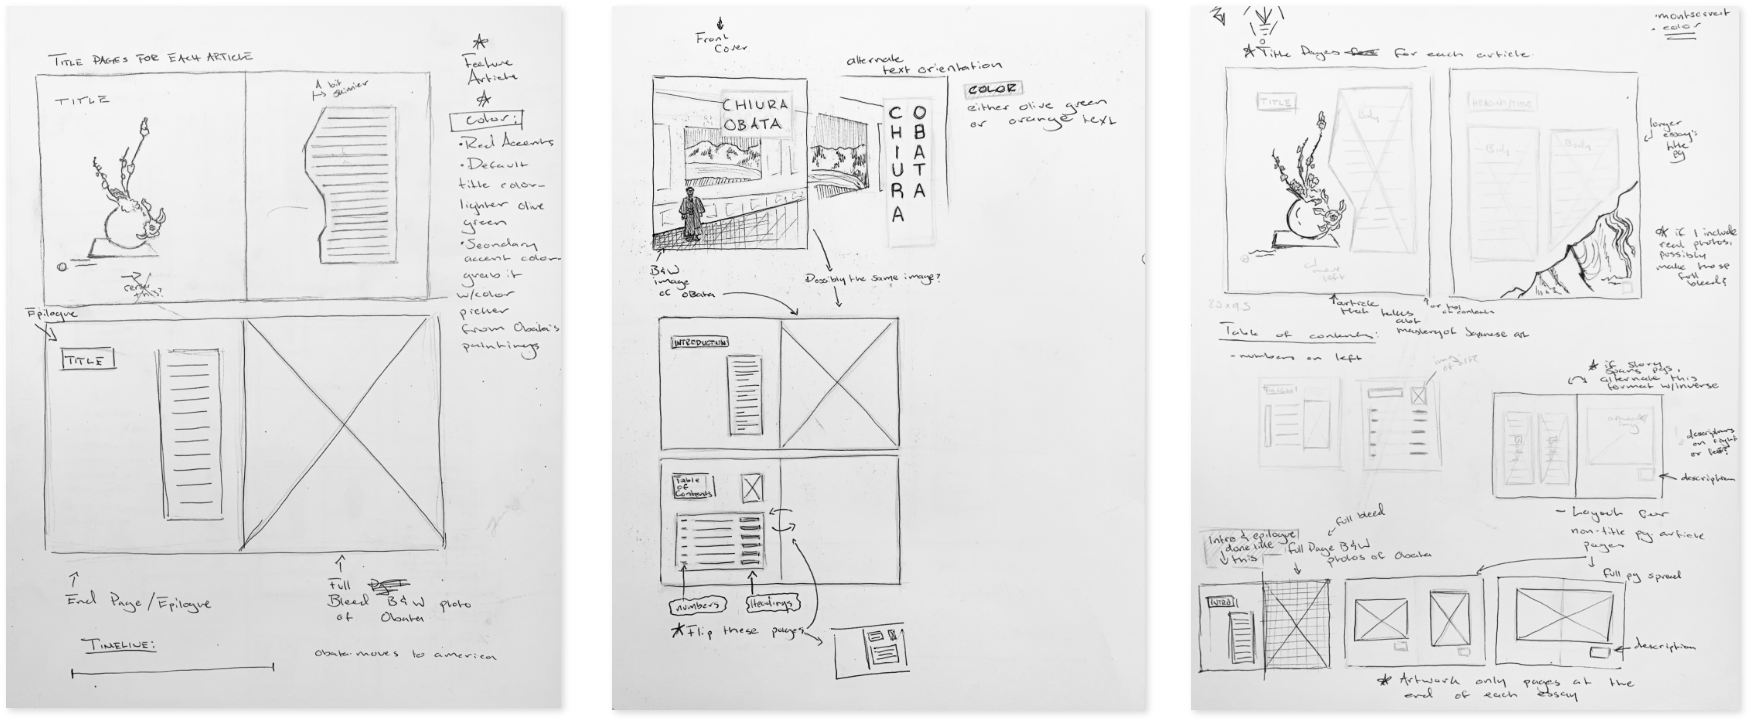 TITLE PAGES FOR EACH ARTICLE
TITLE
A bit
skinnier
Feature
Article
Color:
• Red Accents
• Default
title color-
lighter olive
green
• Secondary
accent color-
grab it
w/color
picker
from Obata's
paintings
Epilogue
TITLE
End Page/Epilogue
Full
Bleed B&W photo
of Obata
TIMELINE:
Obata moves to america
Front
Cover
CHIURA
OBATA
alternate
text orientation
CHIURA
OBATA
COLOR
either olive green
or orange text
B&W
image
of Obata
Possibly the same image?
INTRODUCTION
Table
of
Contents
numbers
Headings
Flip these pages
• montserrat
• color
Title Pages for each article
TITLE
Body
Body
Body
longer
essay's
title
pg
if I include
real photos,
possibly
make those
full
bleed?
move
left
article
that talks
abt
mastery of Japanese art
Table of contents:
- numbers on left
if story
spans pgs,
alternate this
format w/inverse
descriptions
on right
or left?
description
- Layout for
non-title pg article
pages
full bleed
Intro & epilogue
done like
this
full Page B&W
photos of Obata
full pg spread
INTRO
description
Artwork only pages at the
end of each essay